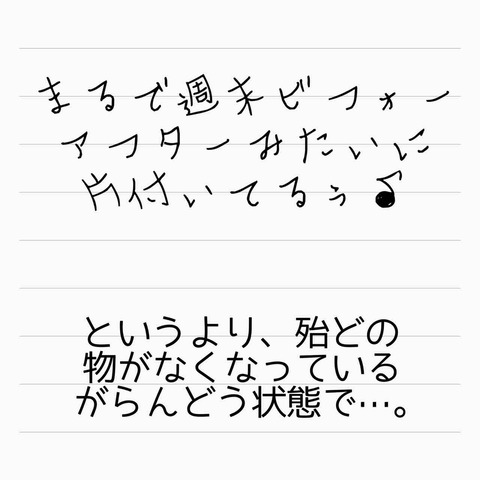 まるで週末ビフォー
アフターみたいに
片付いてるぅ♪
というより、殆どの
物がなくなっている
がらんどう状態で…。